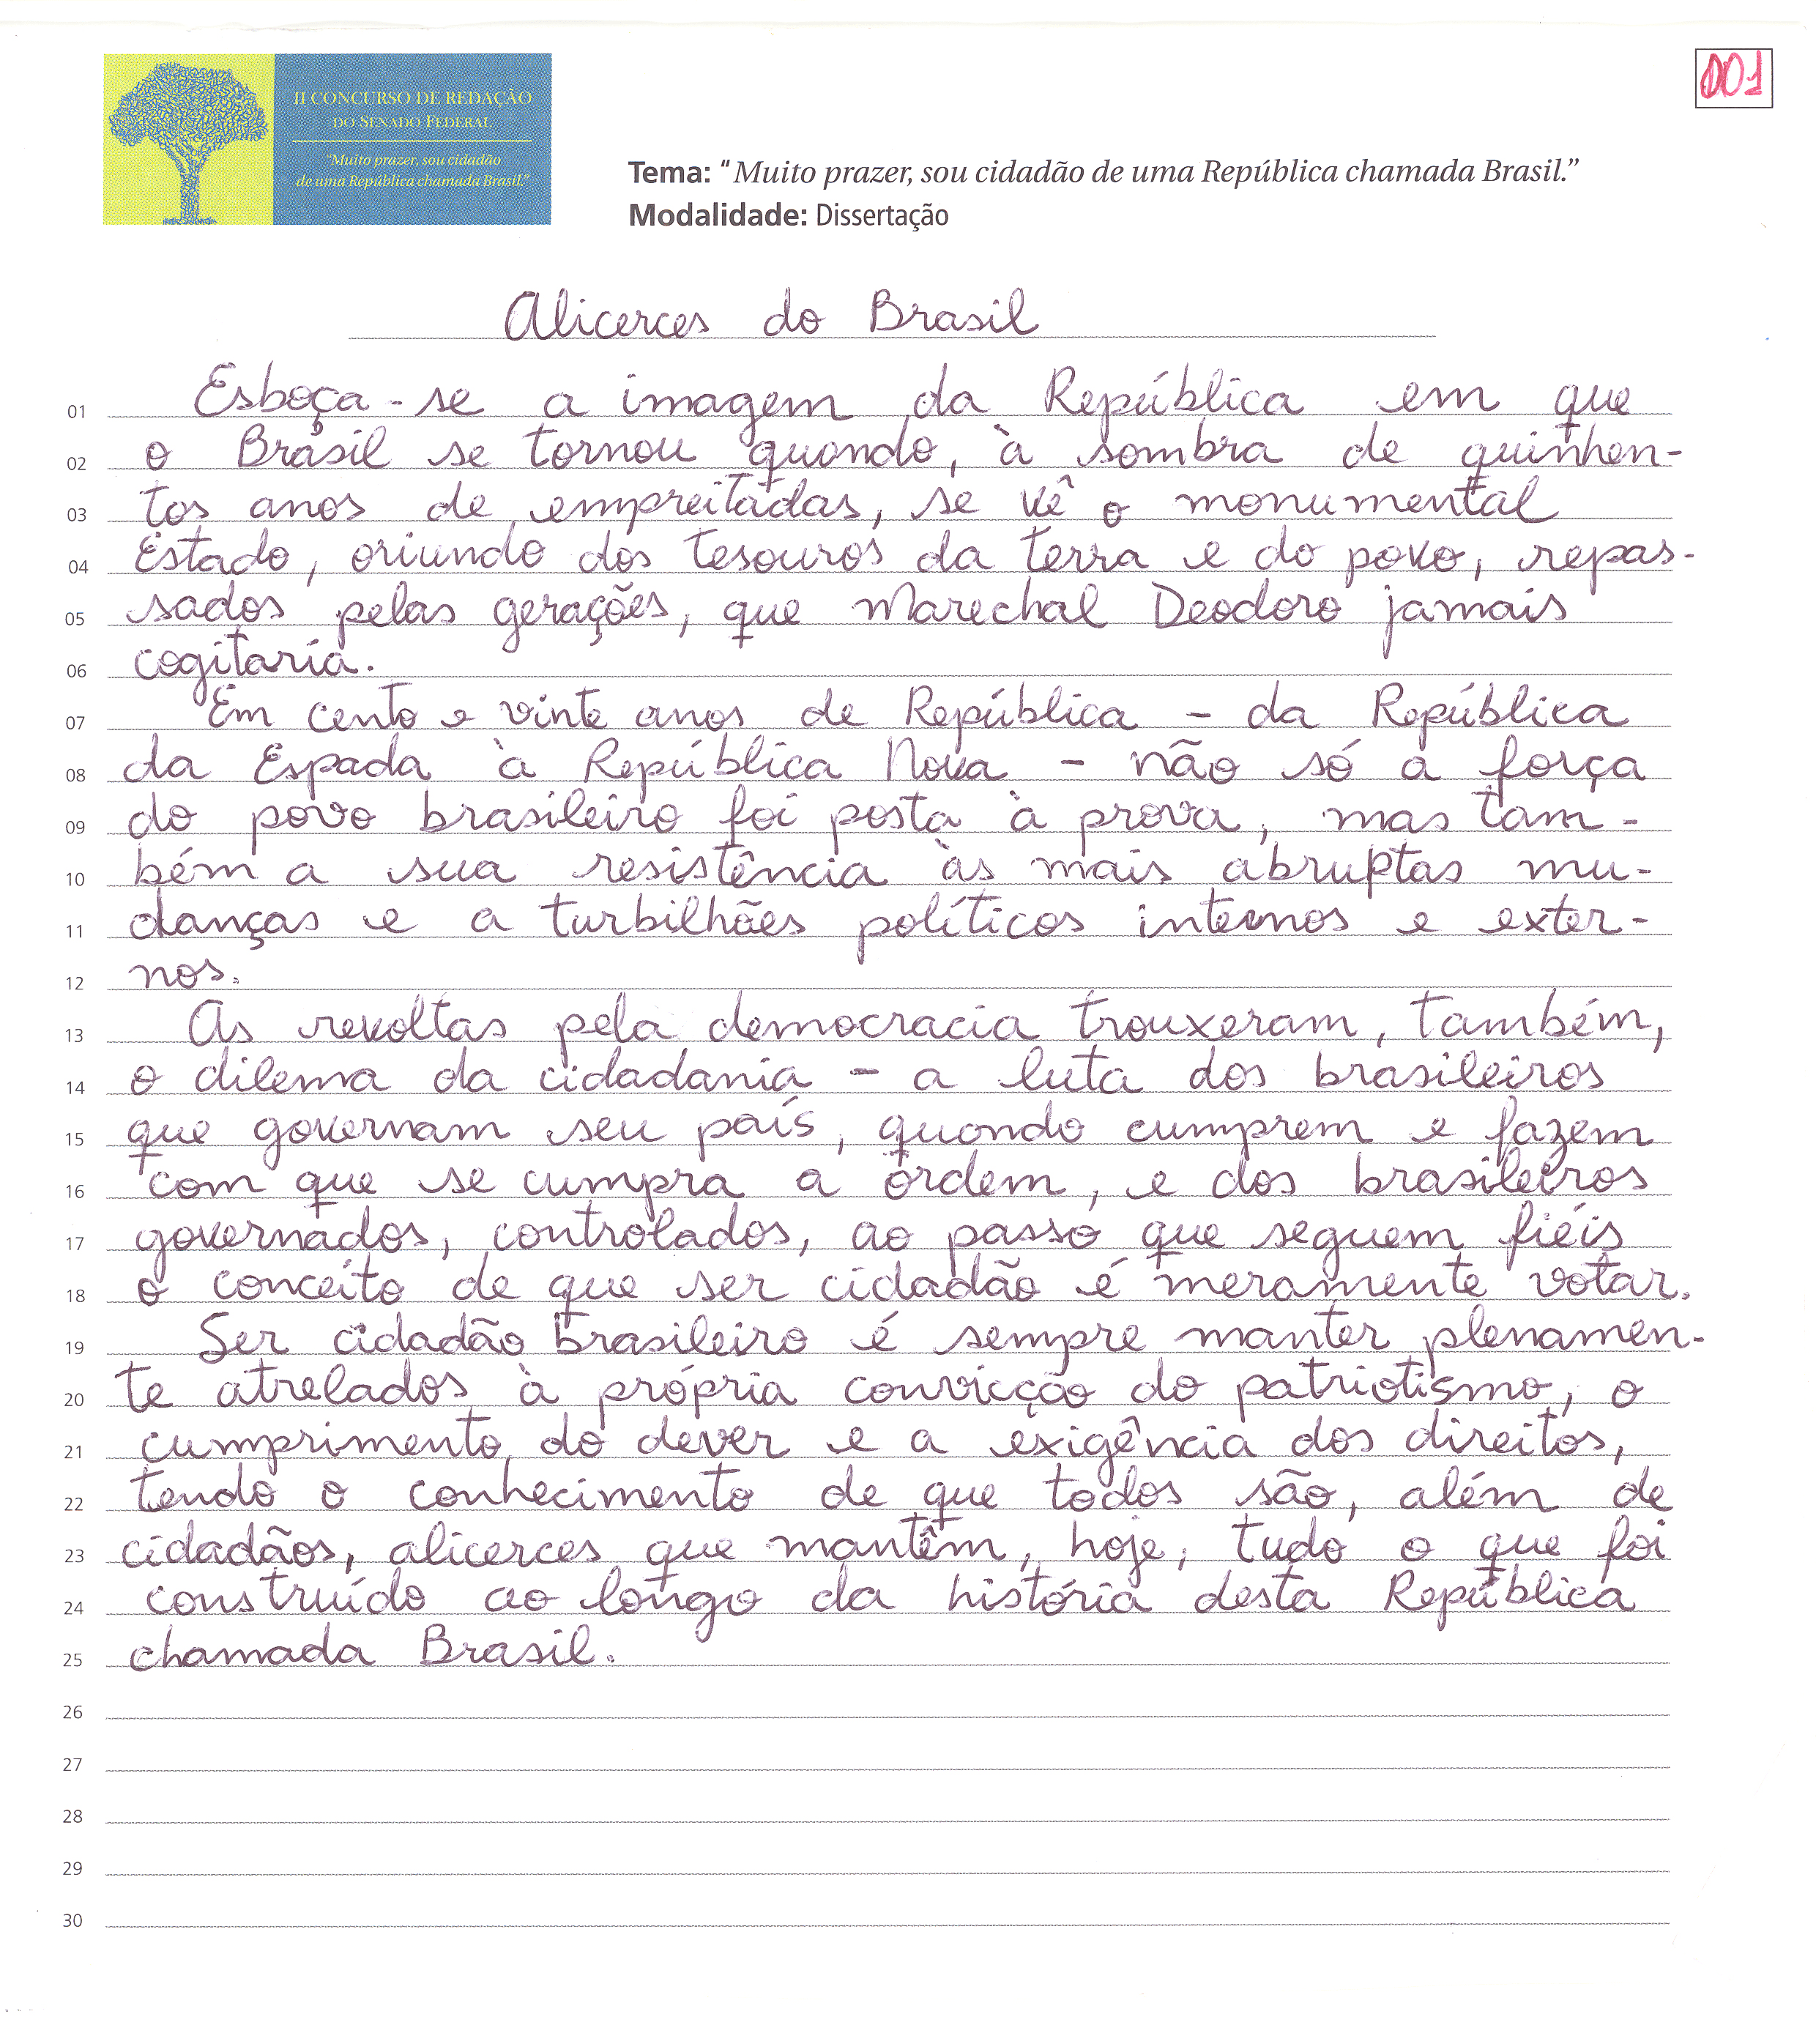 II CONCURSO DE REDAÇÃO
DO SENADO FEDERAL
"Muito prazer, sou cidadão
de uma República chamada Brasil."
001
Tema: "Muito prazer, sou cidadão de uma República chamada Brasil."
Modalidade: Dissertação
Alicerces do Brasil
01 Esboça-se a imagem da República em que
02 o Brasil se tornou quando, à sombra de quinhen-
03 tos anos de empreitadas, se vê o monumental
04 Estado, oriundo dos tesouros da terra e do povo, repas-
05 sados pelas gerações, que Marechal Deodoro jamais
06 cogitaria.
07 Em cento e vinte anos de República - da República
08 da Espada à República Nova - não só a força
09 do povo brasileiro foi posta à prova, mas tam-
10 bém a sua resistência às mais abruptas mu-
11 danças e a turbilhões políticos internos e exter-
12 nos.
13 As revoltas pela democracia trouxeram, também,
14 o dilema da cidadania - a luta dos brasileiros
15 que governam seu país, quando cumprem e fazem
16 com que se cumpra a ordem, e dos brasileiros
17 governados, controlados, ao passo que seguem fiéis
18 o conceito de que ser cidadão é meramente votar.
19 Ser cidadão brasileiro é sempre manter plenamen-
20 te atrelados à própria convicção do patriotismo, o
21 cumprimento do dever e a exigência dos direitos,
22 tendo o conhecimento de que todos são, além de
23 cidadãos, alicerces que mantêm, hoje, tudo o que foi
24 construído ao longo da história desta República
25 chamada Brasil.
26
27
28
29
30